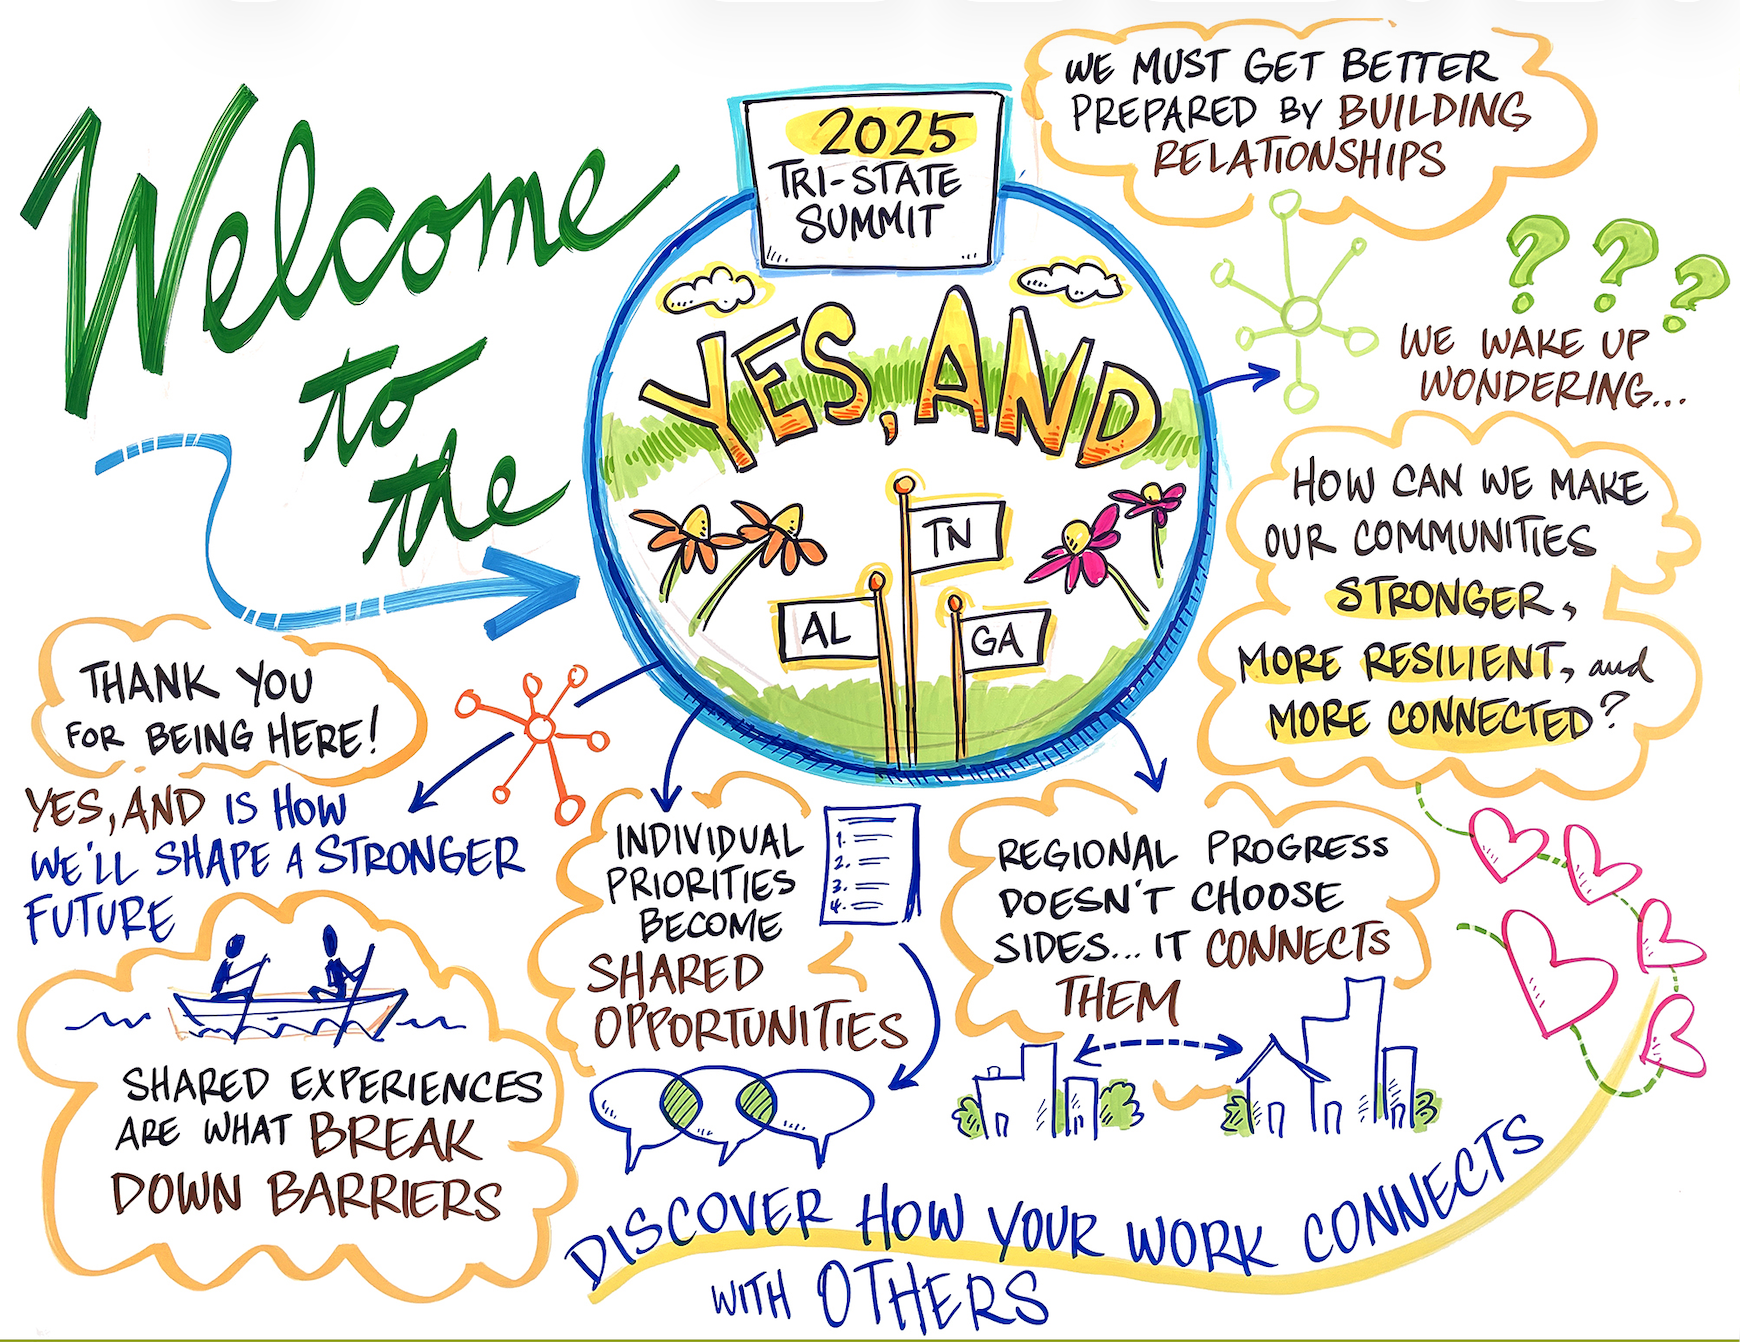 Welcome
to
the
2025
TRI-STATE
SUMMIT
YES, AND
TN
AL
GA
WE MUST GET BETTER
PREPARED BY BUILDING
RELATIONSHIPS
? ? ?
WE WAKE UP
WONDERING...
HOW CAN WE MAKE
OUR COMMUNITIES
STRONGER,
MORE RESILIENT, and
MORE CONNECTED?
THANK YOU
FOR BEING HERE!
YES, AND IS HOW
WE'LL SHAPE A STRONGER
FUTURE
SHARED EXPERIENCES
ARE WHAT BREAK
DOWN BARRIERS
INDIVIDUAL
PRIORITIES
BECOME
SHARED
OPPORTUNITIES
1.
2.
3.
4.
REGIONAL PROGRESS
DOESN'T CHOOSE
SIDES... IT CONNECTS
THEM
DISCOVER HOW YOUR WORK CONNECTS
WITH OTHERS